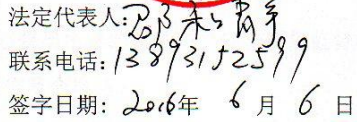 法定代表人:
联系电话:13893152599
签字日期: 2016年 6 月 6 日